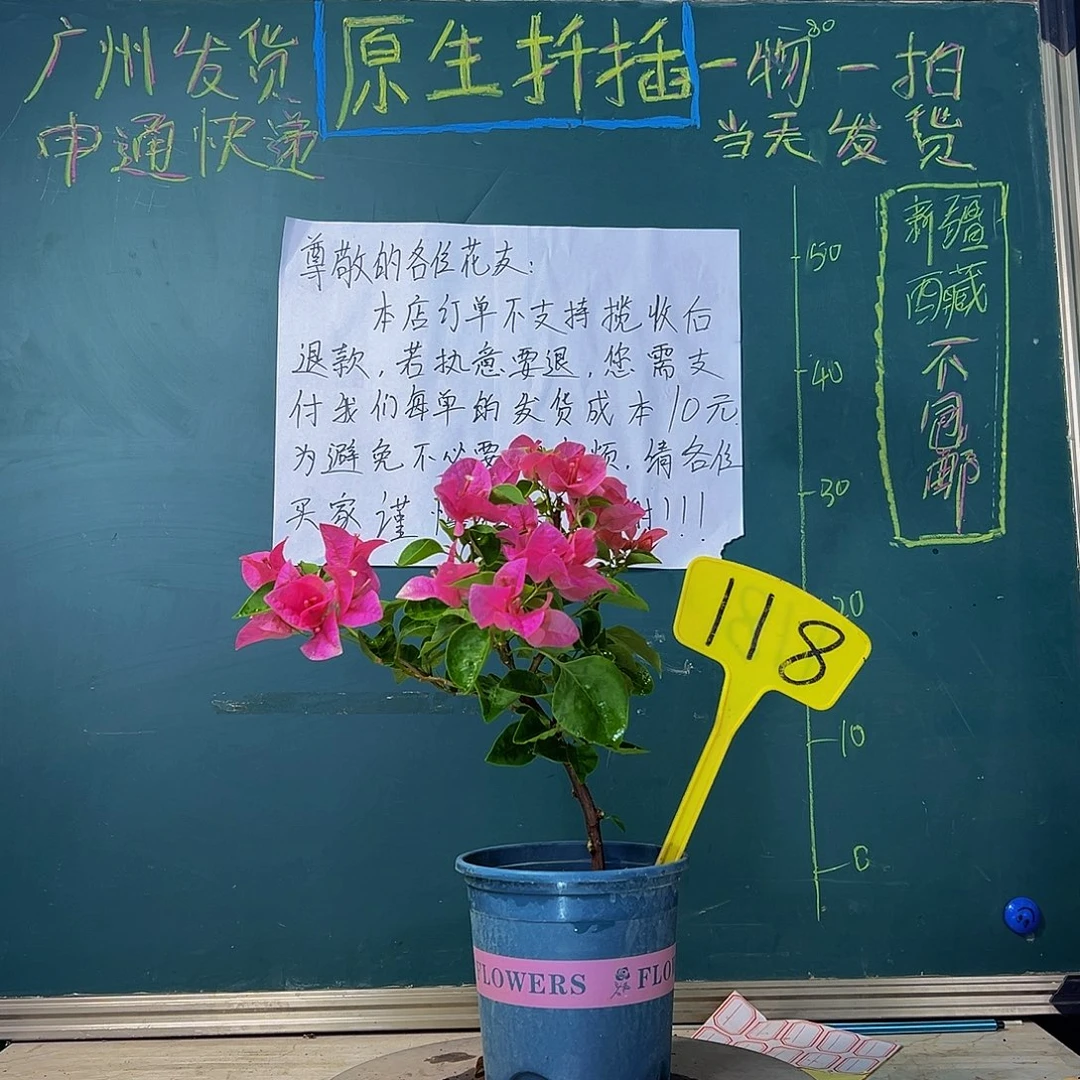 广州发货
申通快递
原生扦插
一物一拍
当天发货
新疆
西藏
不
同
邮
尊敬的各位花友：
本店订单不支持揽收后
退款，若执意要退，您需支
付我们每单的发货成本10元.
为避免不必要 烦.请各位
买家谨 !!!
80
50
40
30
20
10
0
118
FLOWERS
FLO